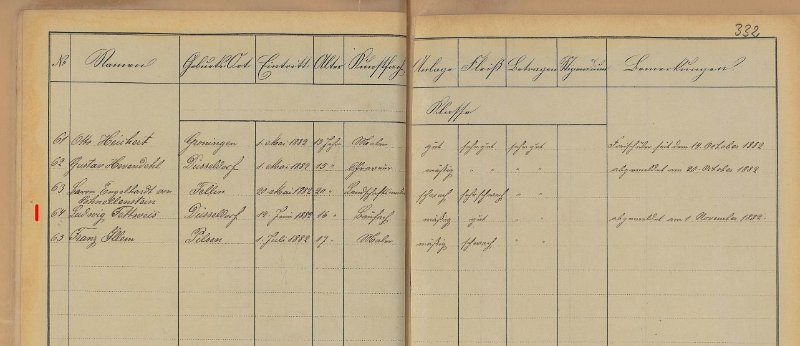 332
No Namen Geburts Ort Eintritt Alter Kunstfach Anlage Fleiß Betragen Stipendium Bemerkungen.
Klasse
61 Otto Heichert Groningen 1. Mai 1882 13 Jahr Maler gut sehr gut sehr gut Freischüler seit dem 14 October 1882
62 Gustav Düsseldorf 1. Mai 1882 15 " Graveur mäßig " " " abgemeldet am 20. October 1882
63 Baron Engelhardt von Fellin 20 Mai 1882 20 " Landschaftsmaler schwach sehr schwach " "
Schnellenstein
64 Ludwig Fettweis Düsseldorf 14. Juni 1882 16 " Baufach mäßig gut " " abgemeldet am 1 November 1882.
65 Franz Pilsen 1. Juli 1882 17 " Maler mäßig schwach " "